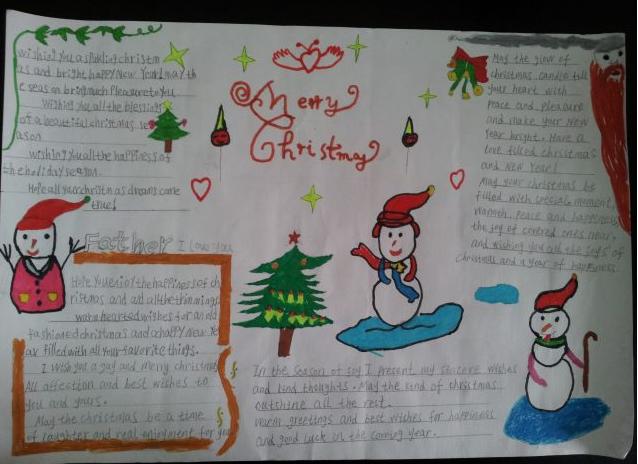 wishing you a sparkling christm
as and bright happy New Year! may th
e season bring much pleasure to you
Wishing you all the blessings
of a beautiful christmas se
ason
wishing you all the happiness of
the holiday season.
Hope all your christmas dreams come
true!
Merry
Christmas
May the glow of
christmas candle fill
your heart with
peace and pleasure
and make your New
Year bright. Have a
love filled christmas
and New Year!
May your christmas be
filled with special moment,
warmth, peace and happiness,
the joy of covered ones near,
and wishing you all the joys of
Christmas and a year of happiness.
Father I Love You
Hope you enjoy the happiness of ch
ristmas and all the trimmings
warm hearted wishes for an old
fashioned christmas and a happy New Ye
ar filled with all your favorite things.
I wish you a gay and merry christmas
All affection and best wishes to
you and yours.
May the christmas be a time
of laughter and real enjoyment for you
In the season of joy I present my sincere wishes
and kind thoughts. May the kind of christmas
outshine all the rest.
warm greetings and best wishes for happiness
and good luck in the coming year.